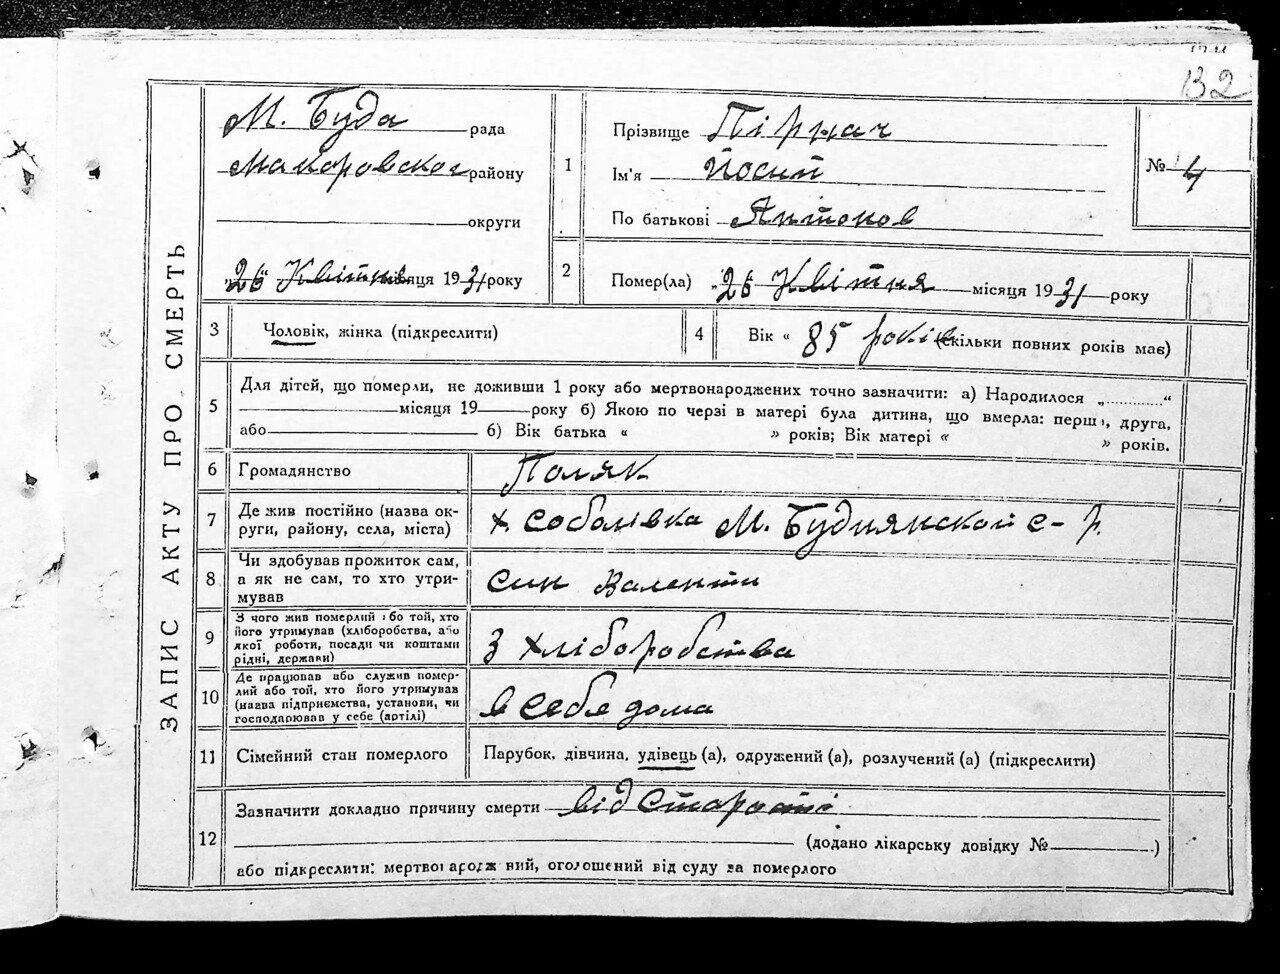 132
ЗАПИС АКТУ ПРО СМЕРТЬ
М. Буда рада
Макоровского району
округи
"26" Квітня місяця 1931 року
1
Прізвище Пірнач
Ім'я Йосип
По батькові Антонов
№ 4
2
Помер(ла) "26 Квітня місяця 1931 року
3
Чоловік, жінка (підкреслити)
4
Вік « 85 років (скільки повних років мав)
5
Для дітей, що померли, не доживши 1 року або мертвонароджених точно зазначити: а) Народилося „............“
місяця 19 року б) Якою по черзі в матері була дитина, що вмерла: перша, друга,
або б) Вік батька « » років; Вік матері « » років.
6
Громадянство
Поляк
7
Де жив постійно (назва ок-
руги, району, села, міста)
х. Соболівка М. Буднянской с-р.
8
Чи здобував прожиток сам,
а як не сам, то хто утри-
мував
син Валенти
9
З чого жив померлий або той, хто
його утримував (хліборобства, або
якої роботи, посади чи коштами
рідні, держави)
З хліборобства
10
Де працював або служив помер-
лий або той, хто його утримував
(назва підприємства, установи, чи
господарював у себе (артілі)
в себе дома
11
Сімейний стан померлого
Парубок, дівчина, удівець (а), одружений (а), розлучений (а) (підкреслити)
12
Зазначити докладно причину смерти від старости
(додано лікарську довідку № .)
або підкреслити: мертвонароджений, оголошений від суду за померлого